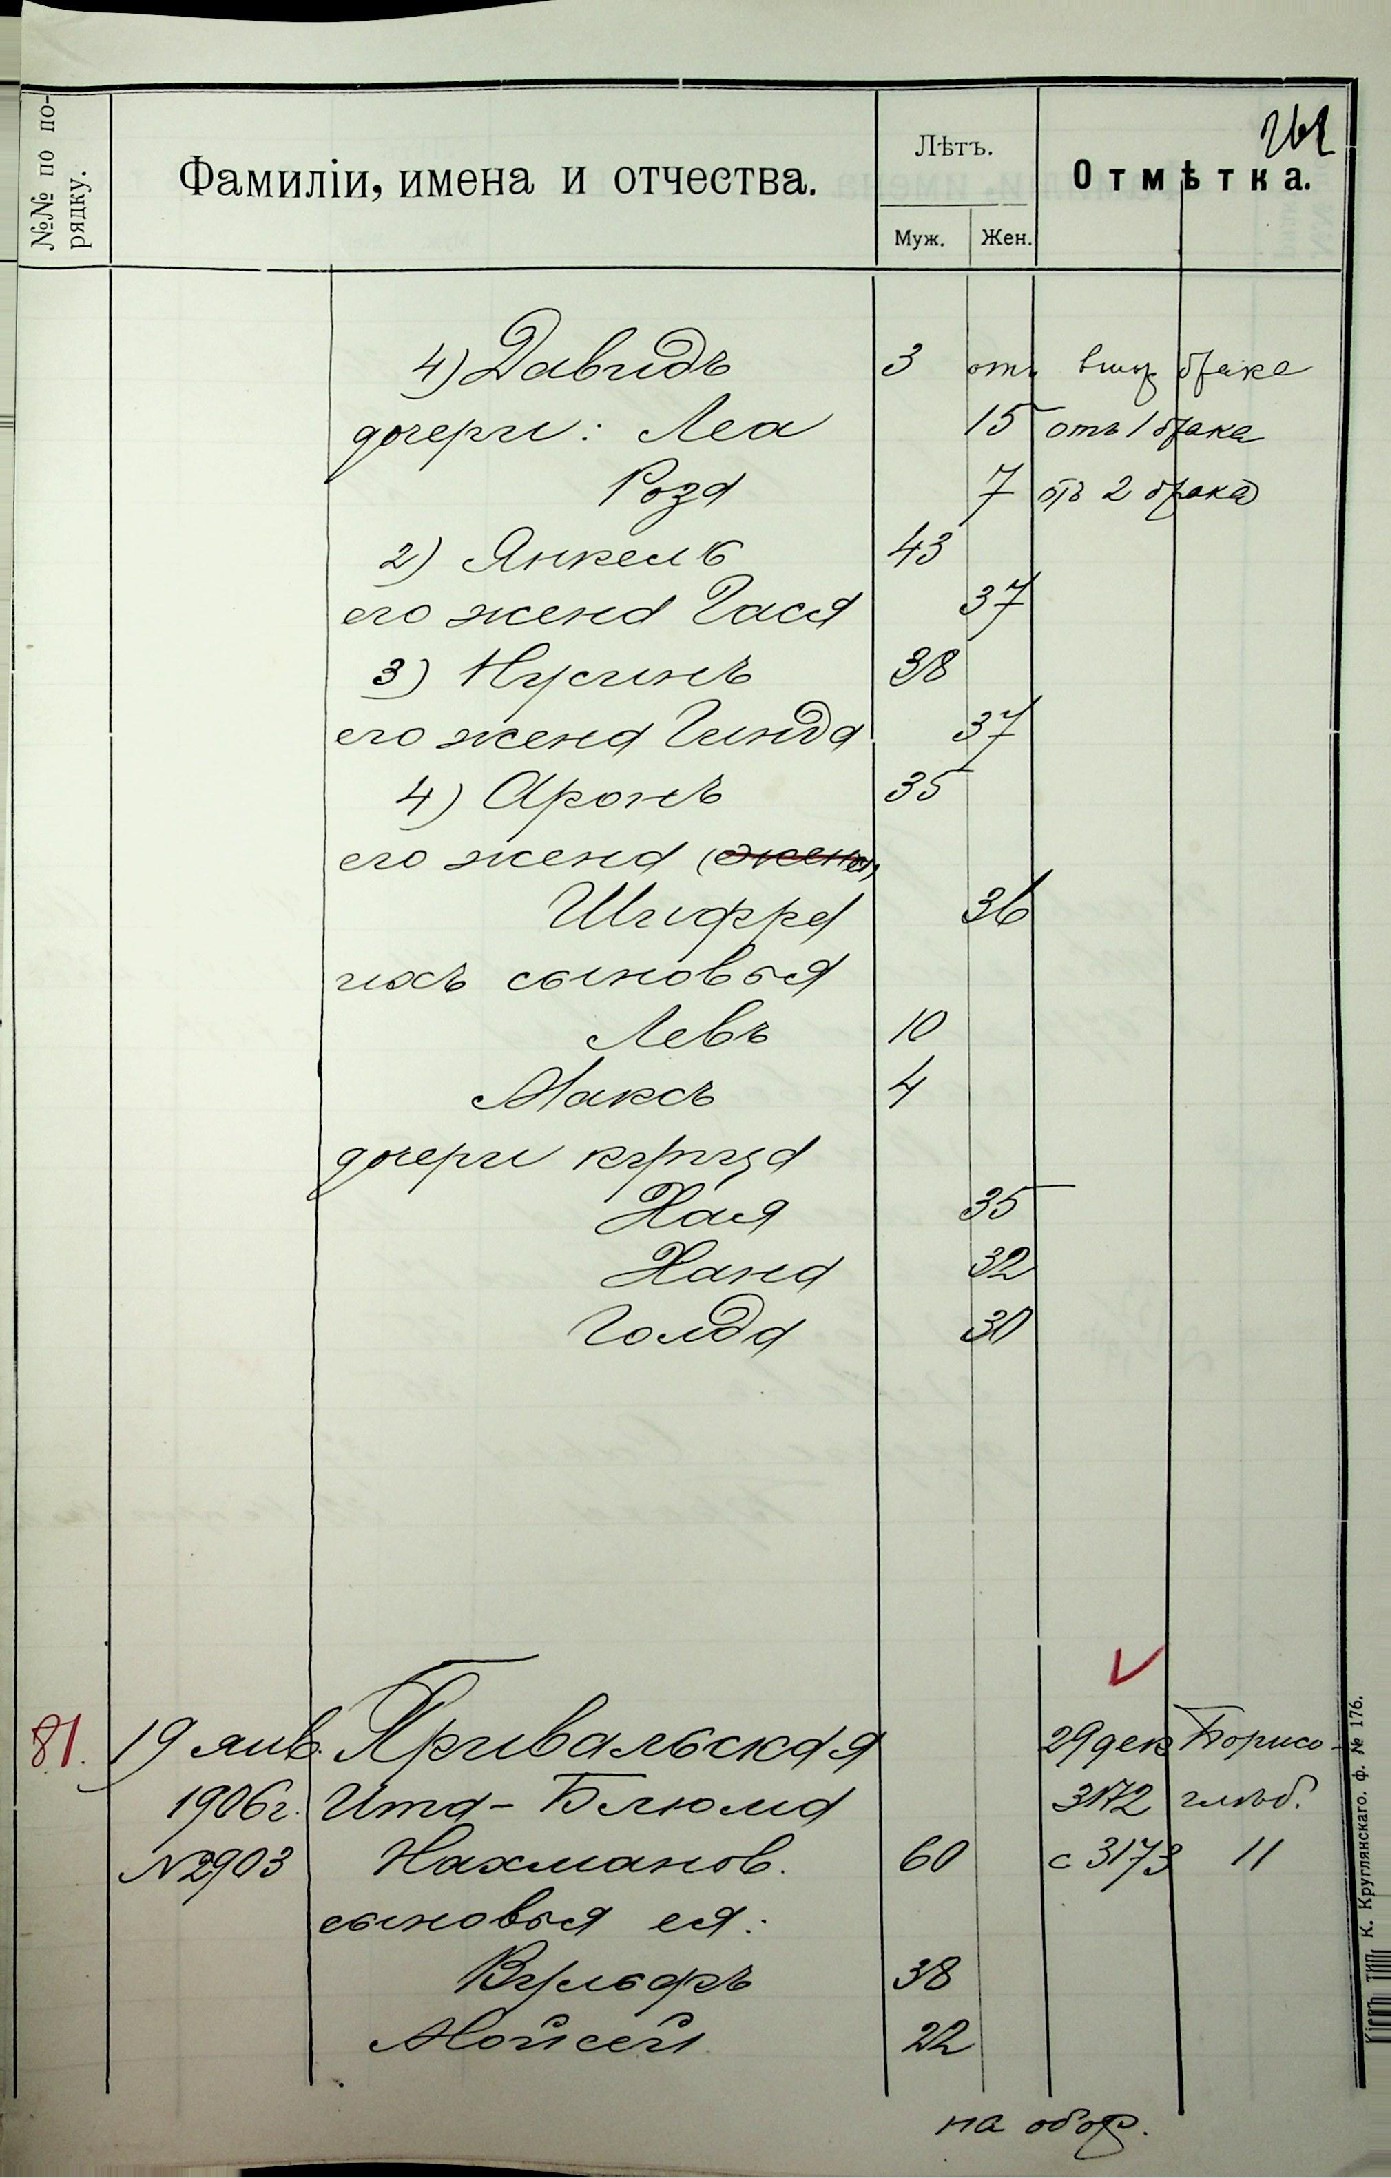 261
№№ по по-
рядку.
Фамиліи, имена и отчества.
Лѣтъ.
Муж. Жен.
Отмѣтка.
4) Давидъ 3 отъ втор брака
дочери: Леа 15 отъ 1 брака
Роза 7 отъ 2 брака
2) Янкель 43
его жена Гася 37
3) Нусинъ 38
его жена Гинда 37
4) Аронъ 35
его жена (жена)
Шифра 36
ихъ сыновья
Левъ 10
Максъ 4
дочери купца
Хая 35
Хана 32
Голда 30
81. 19 янв. Привальская 29 дек Борисо-
1906 г. Ита-Блюма 3172 глѣб.
№ 2903 Нахманов. 60 с 3173 11
сыновья ея:
Вульфъ 38
Мойсей 22
на обор.
К. Круглянскаго. ф. № 176.